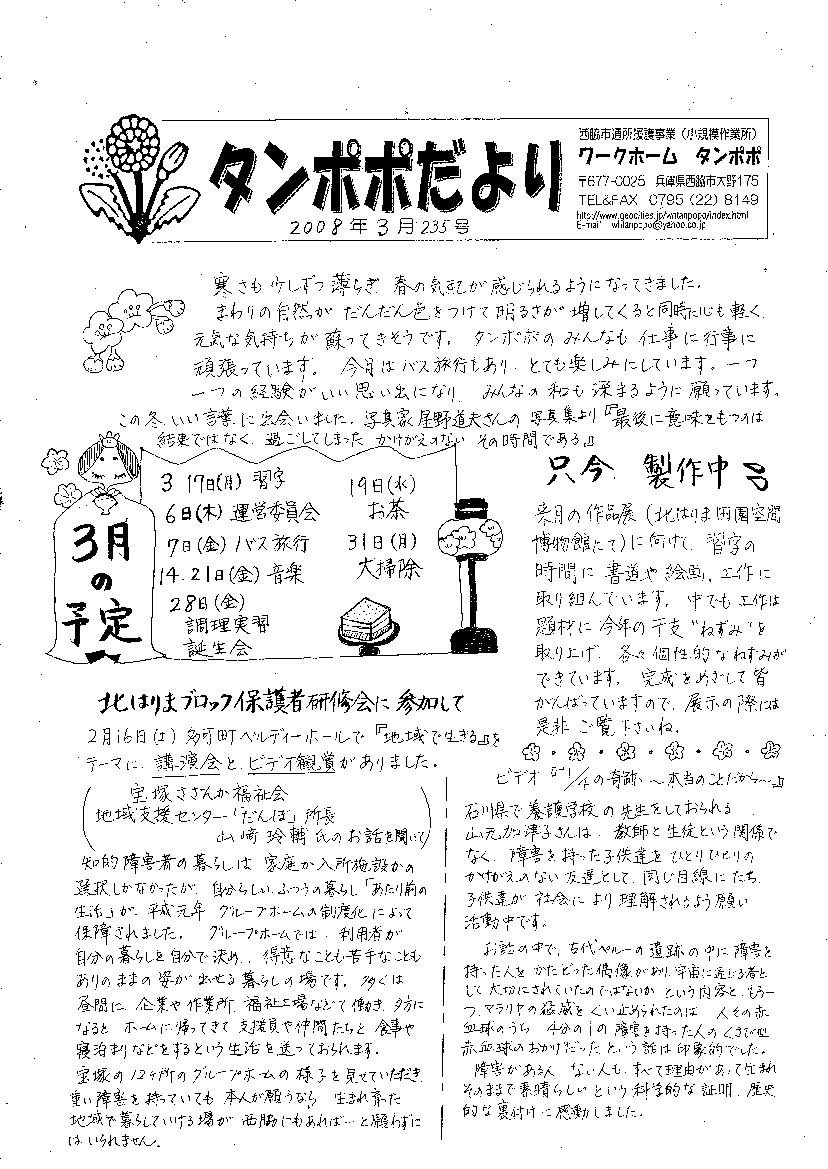 タンポポだより
2008年3月235号
西脇市通所援護事業（小規模作業所）
ワークホーム タンポポ
〒677-0025 兵庫県西脇市大野175
TEL&FAX 0795（22）8149
http://www.geocities.jp/whtanpopo/index.html
E-mail whtanpopo@yahoo.co.jp
寒さも少しずつ薄らぎ 春の気配が感じられるようになってきました。
まわりの自然が だんだん色をつけて明るさが増してくると同時に心も軽く、
元気な気持ちが蘇ってきそうです。 タンポポのみんなも仕事に行事に
頑張っています。 今月はバス旅行もあり、とても楽しみにしています。一つ
一つの経験がいい思い出になり、みんなの和も深まるように願っています。
この冬、いい言葉に出会いました。写真家星野道夫さんの写真集より『最後に意味をもつのは
結果ではなく、過ごしてしまった かけがえのない その時間である』
3月の予定
3 17日(月) 習字
6日(木) 運営委員会
7日(金) バス旅行
14.21日(金) 音楽
28日(金)
調理実習
誕生会
19日(水)
お茶
31日(月)
大掃除
只今 製作中
来月の作品展（北はりま田園空間
博物館にて）に向けて、習字の
時間に 書道や絵画、工作に
取り組んでいます。 中でも工作は
題材に今年の干支"ねずみ"を
取り上げ、各々個性的なねずみが
できています。 完成をめざして皆
がんばっていますので、展示の際には
是非 ご覧下さいね。
北はりまブロック保護者研修会に参加して
2月16日(土) 多可町ベルディーホールで『地域で生きる』を
テーマに、講演会と、ビデオ観賞がありました。
宝塚さざんか福祉会
地域支援センター「だんぼ」所長
山崎玲輔氏のお話を聞いて
知的障害者の暮らしは 家庭か入所施設かの
選択しかなかったが、自分らしい、ふつうの暮らし「あたり前の
生活」が、平成元年 グループホームの制度化によって
保障されました。 グループホームでは、利用者が
自分の暮らしを自分で決め、得意なことも苦手なことも
ありのままの姿が出せる暮らしの場です。多くは
昼間に、企業や作業所、福祉工場などで働き、夕方に
なると ホームに帰ってきて 支援員や仲間たちと 食事や
寝泊まりなどをするという生活を送っておられます。
宝塚の12ヶ所のグループホームの様子を見せていただき、
重い障害を持っていても 本人が願うなら、生まれ育った
地域で暮らしていける場が 西脇にもあれば…と願わずに
はいられません。
ビデオ『1/4の奇跡 ～本当のことだから～』
石川県で養護学校の先生をしておられる
山元加津子さんは、教師と生徒という関係で
なく、障害を持った子供達をひとりひとりの
かけがえのない友達として、同じ目線にたち、
子供達が 社会により理解されるよう願い
活動中です。
お話の中で、古代ペルーの遺跡の中に障害を
持った人をかたどった偶像があり、宇宙に通じる者と
して大切にされていたのではないか という内容と、もう一
つ、マラリヤの猛威をくい止められたのは 人その赤
血球のうち 4分の1の障害を持った人のくさび型
赤血球のおかげだった という話は印象的でした。
障害がある人 ない人も、すべて理由があって生まれ
そのままで素晴らしいという科学的な証明、歴史
的な裏付けに感動しました。